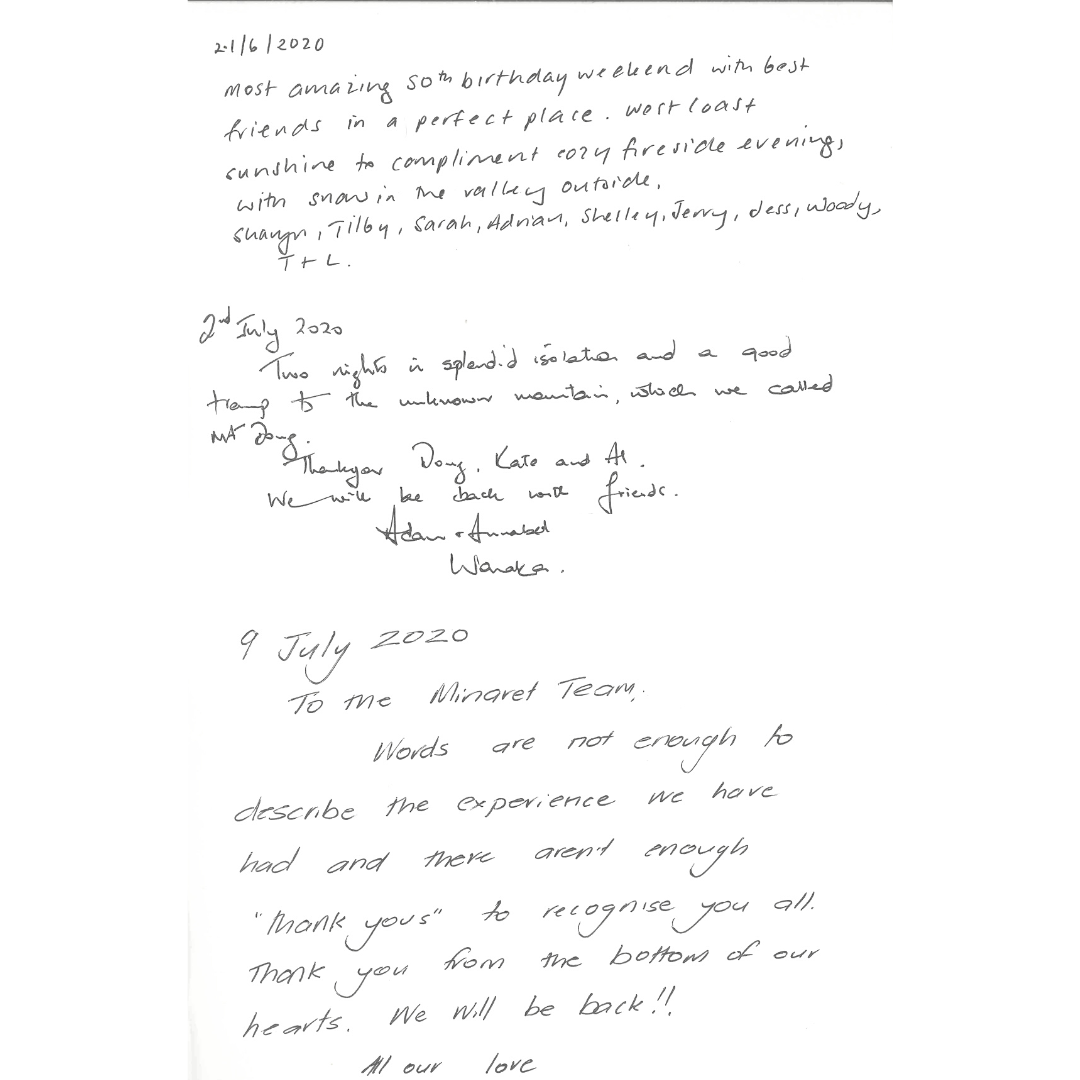 21/6/2020
Most amazing 50th birthday weekend with best
friends in a perfect place. West Coast
sunshine to compliment cozy fireside evenings
with snow in the valley outside.
Tilby, Sarah, Adrian, Shelley, Jerry, Jess, Woody,
T + L.
2nd July 2020
Two nights in splendid isolation and a good
tramp to the unknown mountain, which we called
Mt Doug.
Thankyou Doug, Kate and Al.
We will be back with friends.
Adam + Annabel
Wanaka.
9 July 2020
To the Minaret Team,
Words are not enough to
describe the experience we have
had and there aren't enough
"thank yous" to recognise you all.
Thank you from the bottom of our
hearts. We will be back!!
All our love